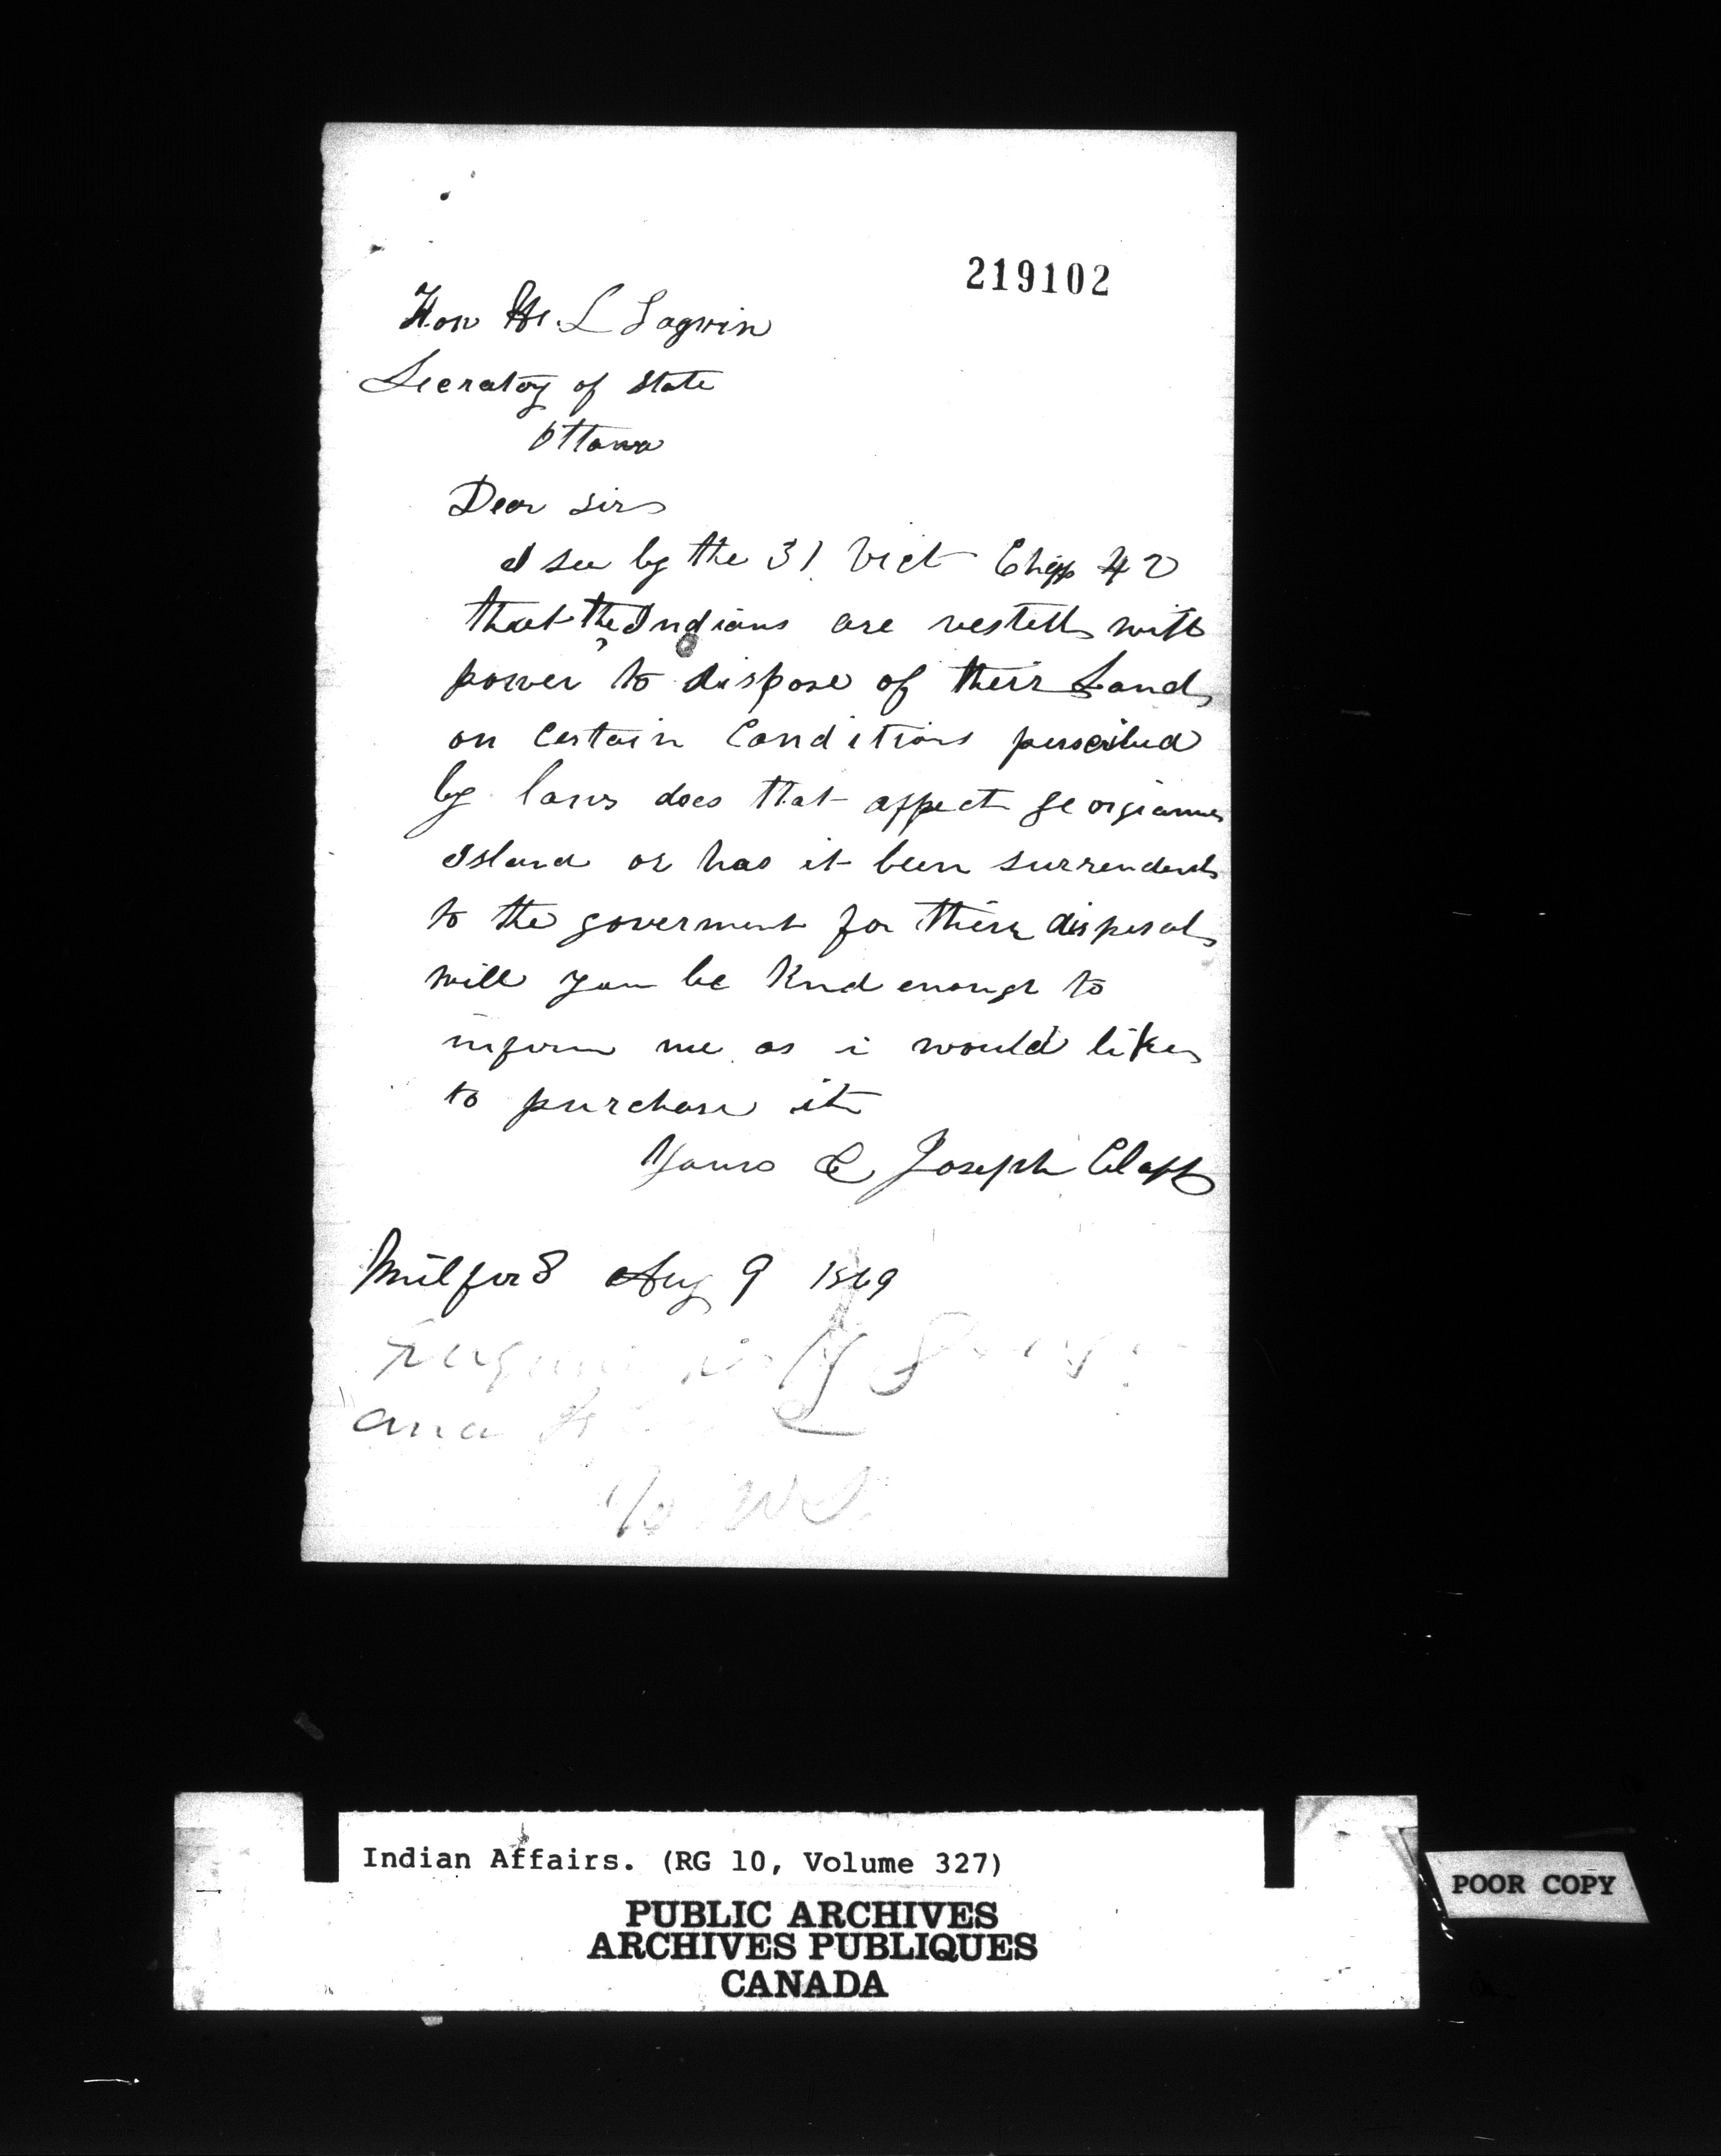 219102
Hon H. L Lagvin
Secratoy of State
Ottawa
Dear Sir
I see by the 31 Vict Chap 42
that the Indians are vested with
power to dispose of their Land
on Certain Conditions perscibed
by laws does that affect georgianna
Island or has it been surrenderd
to the goverment for their disposal
will you be kind enough to
inform me as i would like
to purchase it
Yours & Joseph Clapp
Milford Aug 9 1869
ana
W S.
Indian Affairs. (RG 10, Volume 327)
PUBLIC ARCHIVES
ARCHIVES PUBLIQUES
CANADA
POOR COPY